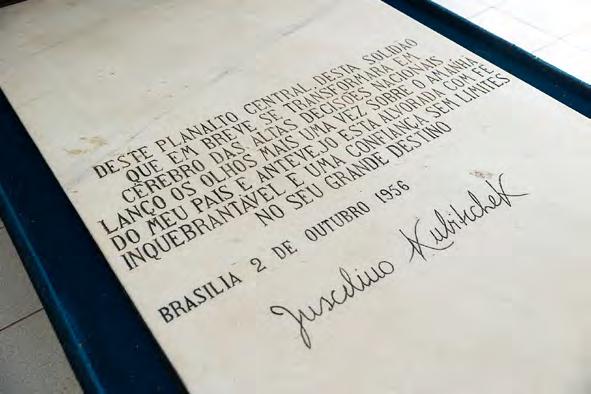 DESTE PLANALTO CENTRAL DESTA SOLIDÃO
QUE EM BREVE SE TRANSFORMARA EM
CÉREBRO DAS ALTAS DECISÕES NACIONAIS
LANÇO OS OLHOS MAIS UMA VEZ SOBRE O AMANHÃ
DO MEU PAIS E ANTEVEJO ESTA ALVORADA COM FÉ
INQUEBRANTÁVEL E UMA CONFIANÇA SEM LIMITES
NO SEU GRANDE DESTINO
BRASILIA 2 DE OUTUBRO 1956
Juscelino Kubitschek